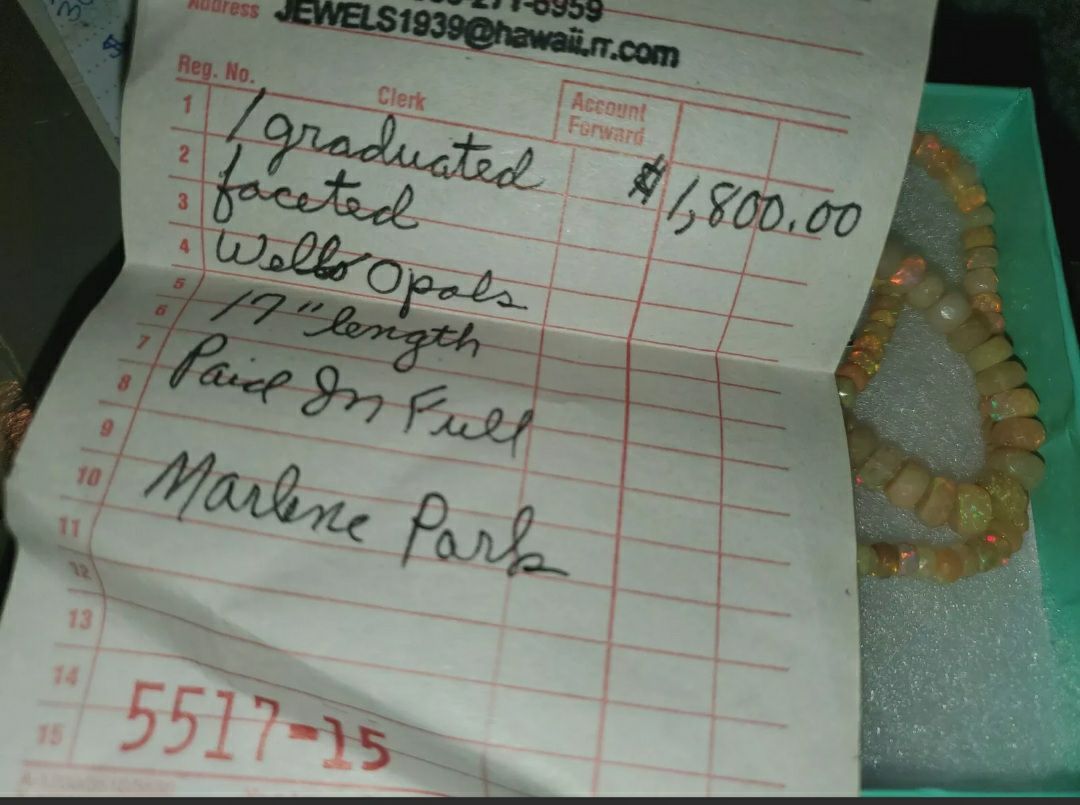 271-6959
Address JEWELS1939@hawaii.rr.com
Reg. No. Clerk Account Forward
1 1 graduated $1,800.00
2 faceted
3 Wello Opals
4 17" length
5
6 Paid In Full
7
8
9 Marlene Park
10
11
12
13
14
15
5517-15